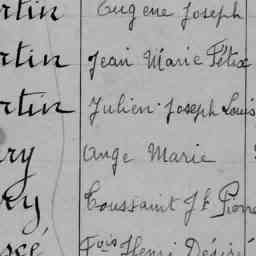 rtin Eugène Joseph
rtin Jean Marie Félix
rtin Julien Joseph Louis
ry Ange Marie
ry Toussaint Jh Pierre
scé Fois Henri Désiré